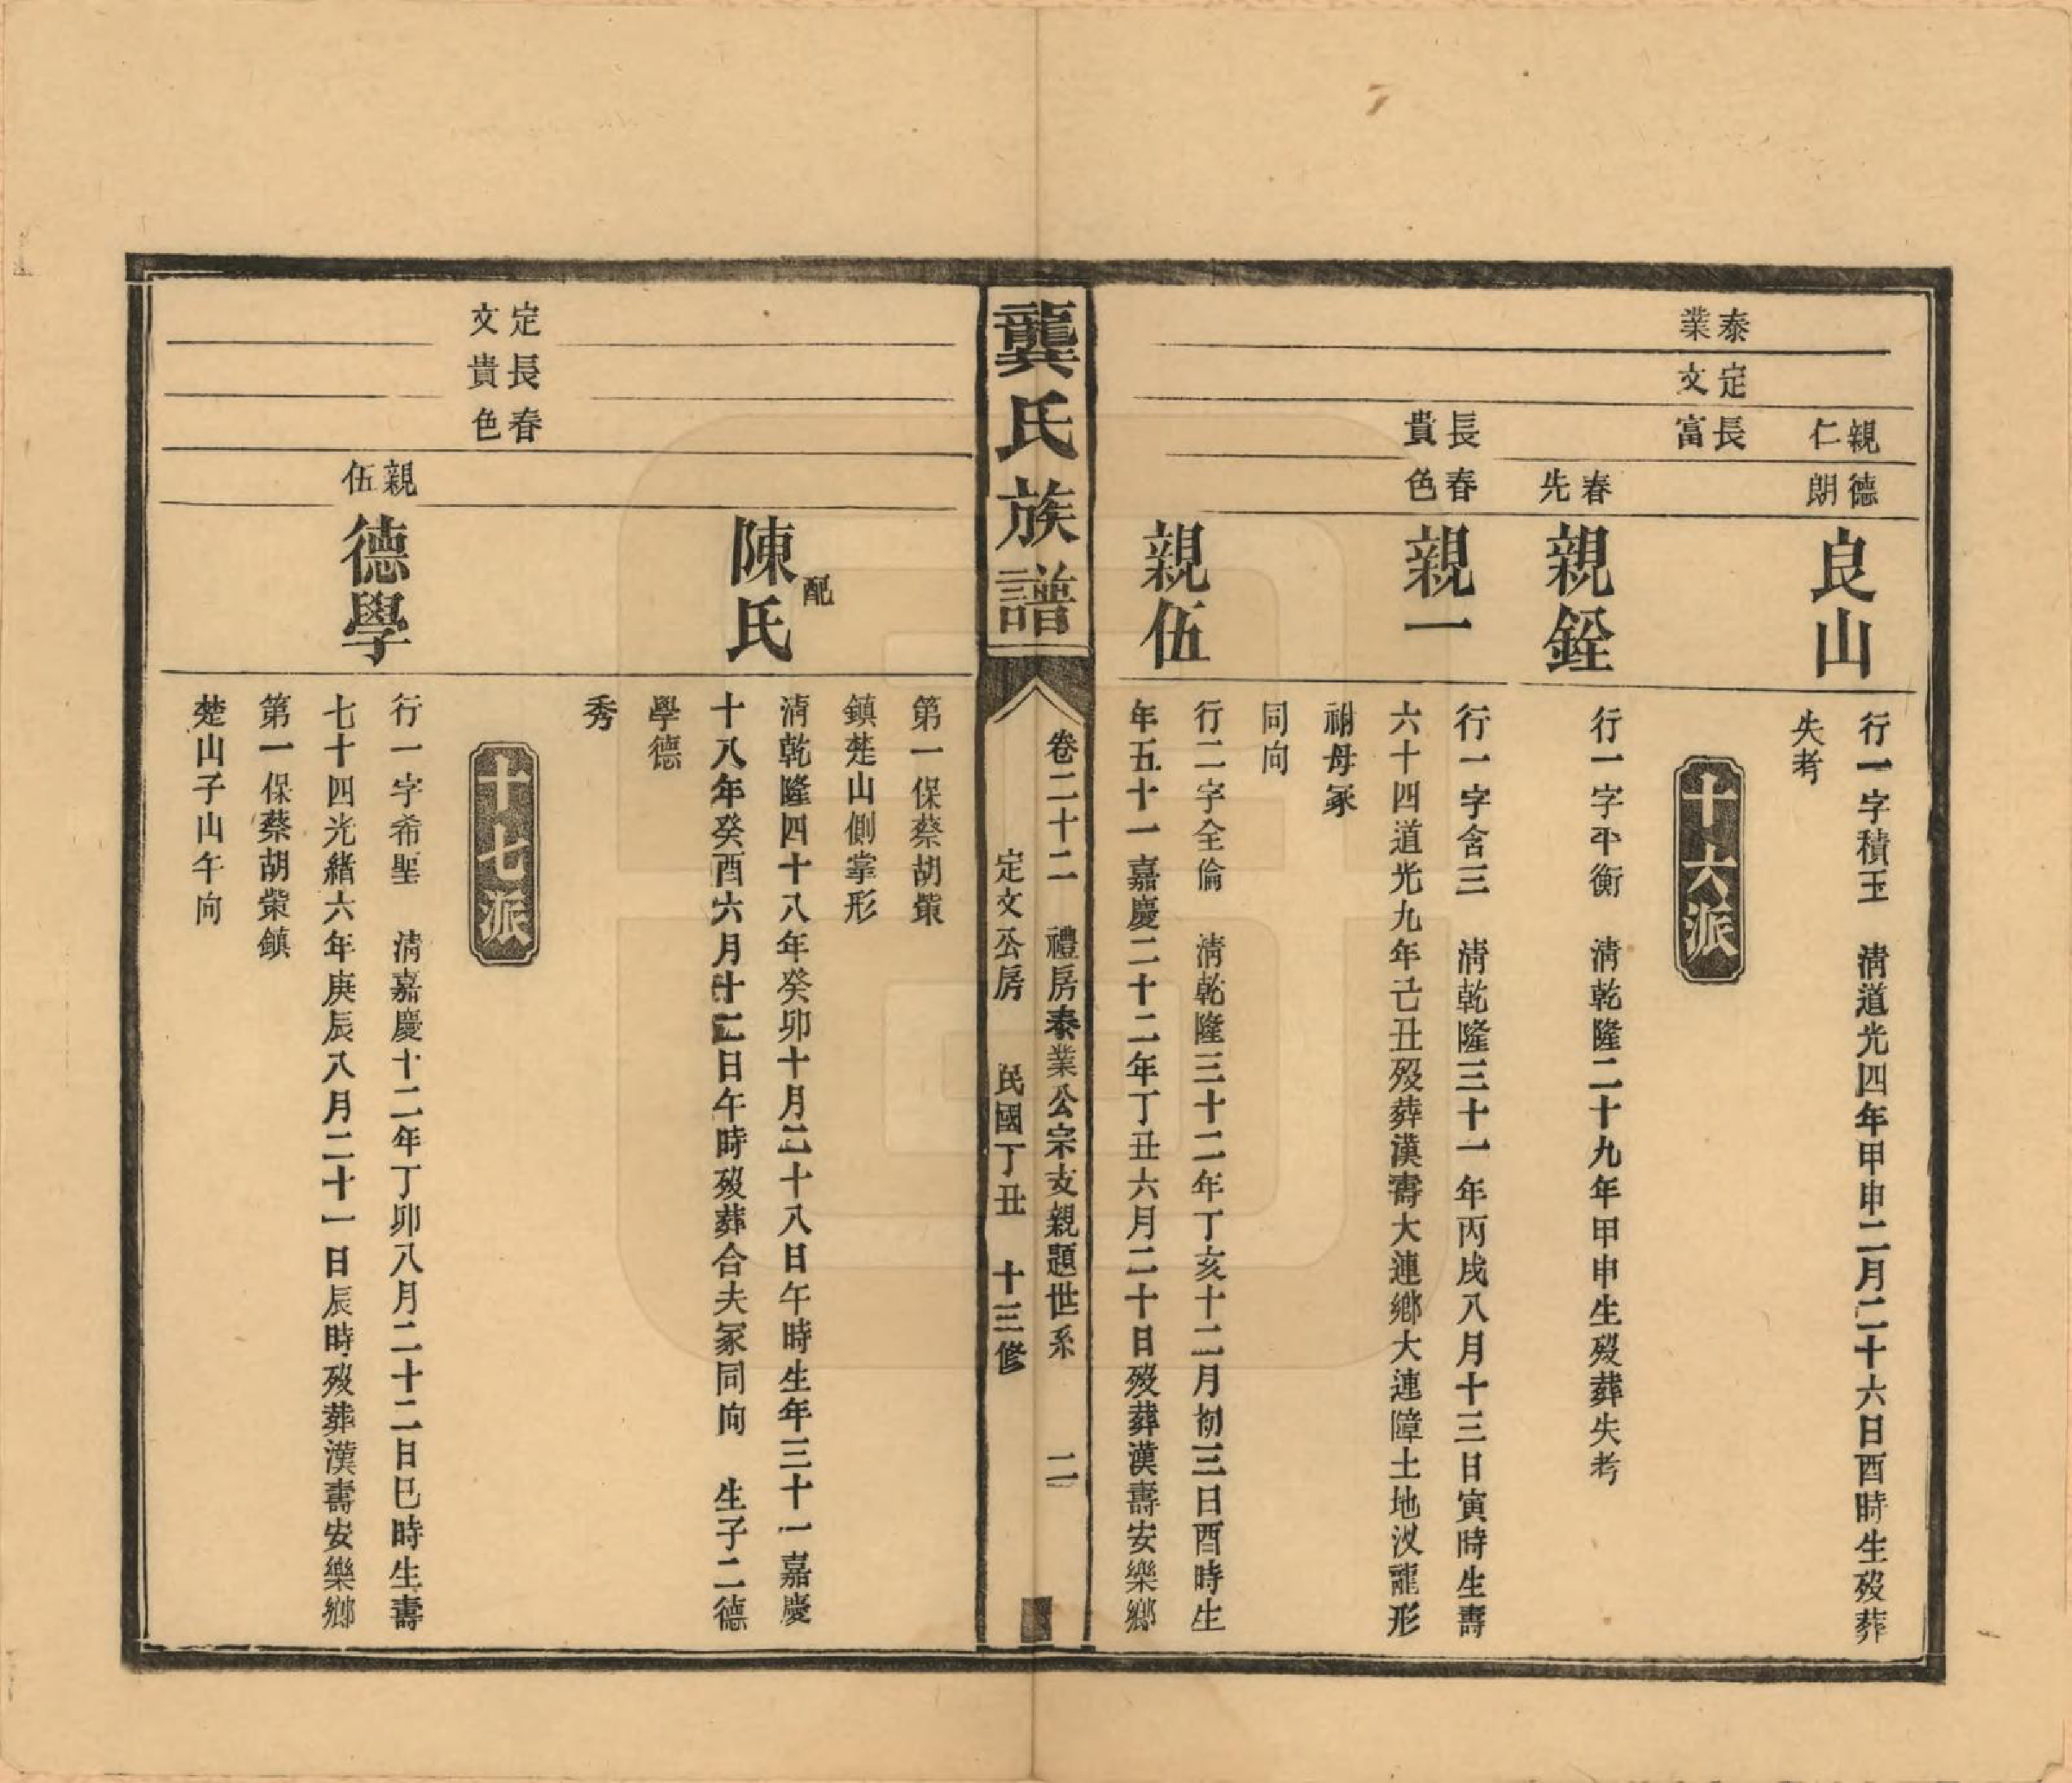 親仁
德朗
良山
行一字積玉　淸道光四年甲申二月二十六日酉時生歿葬
失考
泰業
定文
長富
十六派
春先
親銓
行一字平衡　淸乾隆二十九年甲申生歿葬失考
長貴
春色
親一
行一字含三　淸乾隆三十一年丙戌八月十三日寅時生壽
六十四道光九年己丑歿葬漢壽大連鄉大連障土地汊龍形
祔母冢
同向
親伍
行二字全倫　淸乾隆三十二年丁亥十二月初三日酉時生
年五十一嘉慶二十二年丁丑六月二十日歿葬漢壽安樂鄉
龔氏族譜
卷二十二　禮房泰業公宗支親題世系　二
定文公房　民國丁丑　十三修
第一保蔡胡
鎭楚山側掌形
配
陳氏
淸乾隆四十八年癸卯十月二十八日午時生年三十一嘉慶
十八年癸酉六月十二日午時歿葬合夫冢同向　生子二德
學德
秀
定長春
文貴色
十七派
親伍
德學
行一字希聖　淸嘉慶十二年丁卯八月二十二日巳時生壽
七十四光緖六年庚辰八月二十一日辰時歿葬漢壽安樂鄉
第一保蔡胡鎭
楚山子山午向